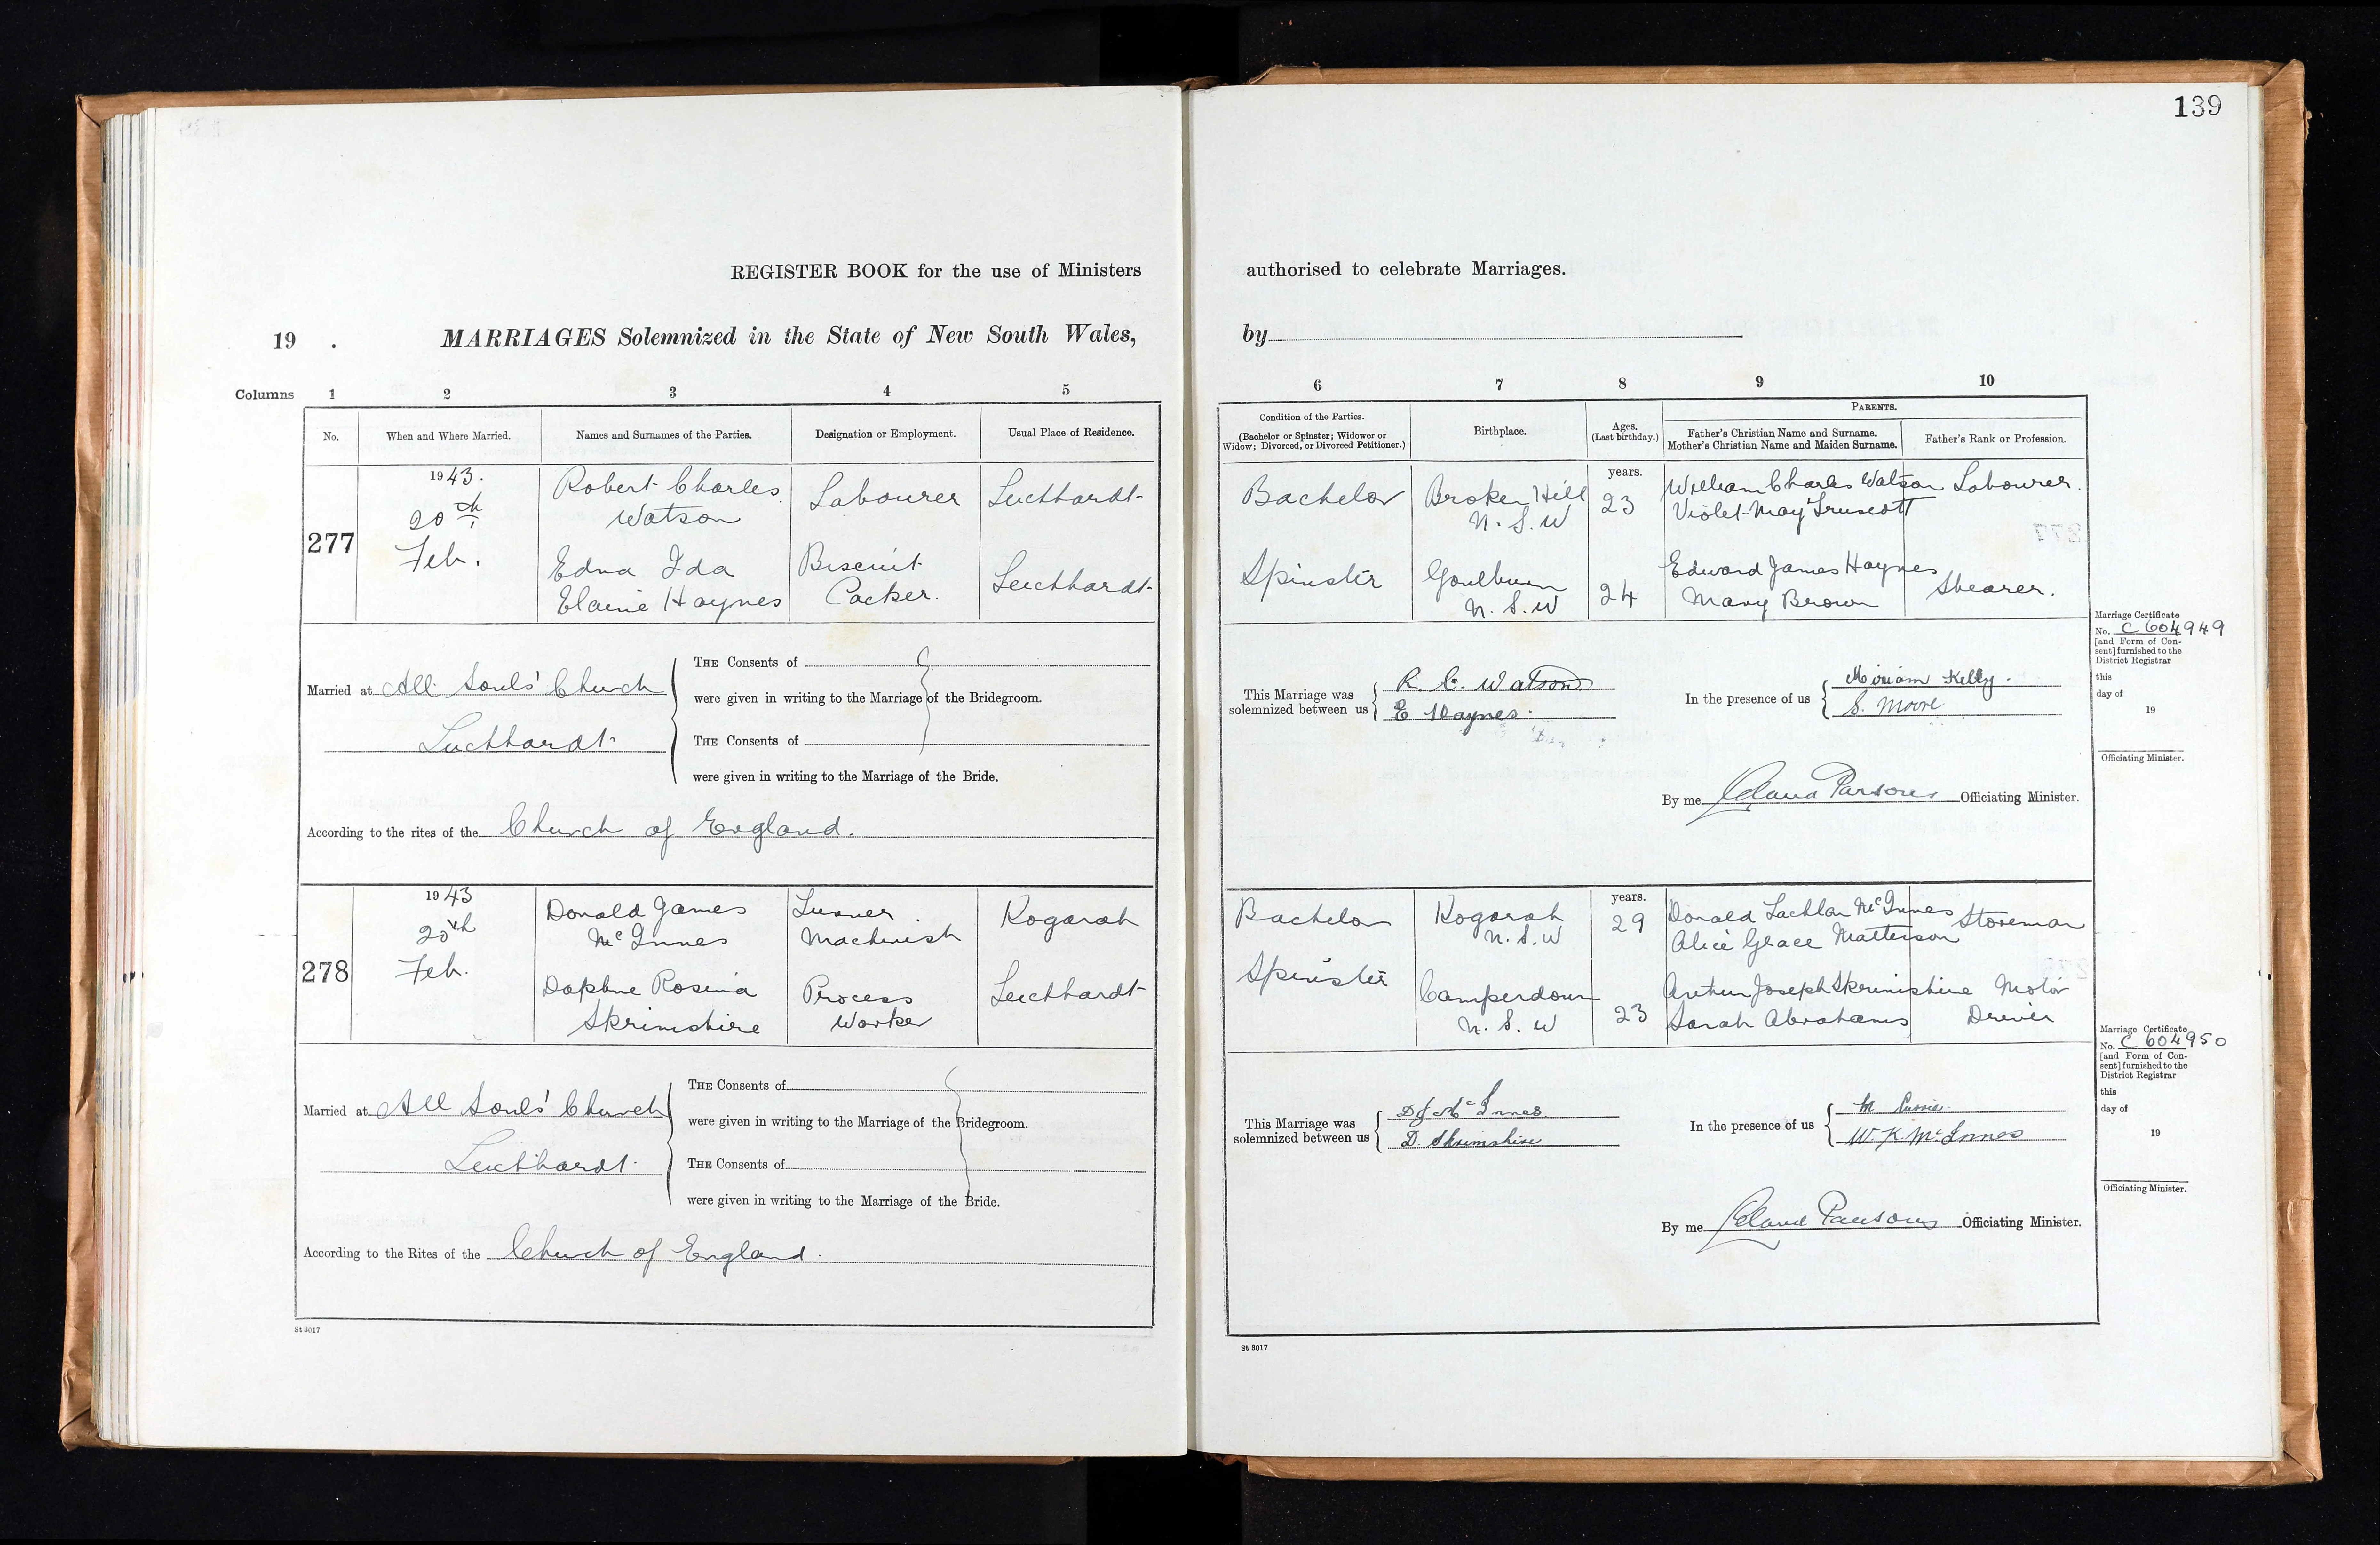 139
REGISTER BOOK for the use of Ministers authorised to celebrate Marriages.
19 . MARRIAGES Solemnized in the State of New South Wales, by
Columns 1 2 3 4 5 6 7 8 9 10
PARENTS.
No. When and Where Married. Names and Surnames of the Parties. Designation or Employment. Usual Place of Residence.
Condition of the Parties.
(Bachelor or Spinster; Widower or
Widow; Divorced, or Divorced Petitioner.)
Birthplace.
Ages.
(Last birthday.)
Father's Christian Name and Surname.
Mother's Christian Name and Maiden Surname.
Father's Rank or Profession.
277
1943.
20th
Feb.
Robert Charles
Watson
Labourer
Leichhardt
Bachelor
Broken Hill
N.S.W
years.
23
William Charles Watson
Violet May Truscott
Labourer.
Edna Ida
Elaine Haynes
Biscuit
Packer.
Leichhardt
Spinster
Goulburn
N.S.W
24
Edward James Haynes
Mary Brown
Shearer.
Married at All Souls' Church
Leichhardt
THE Consents of
were given in writing to the Marriage of the Bridegroom.
THE Consents of
were given in writing to the Marriage of the Bride.
According to the rites of the Church of England.
This Marriage was
solemnized between us
R. C. Watson
E Haynes.
In the presence of us
Miriam Kelly.
S. Moore
By me Parsons Officiating Minister.
Marriage Certificate
No. C 604949
[and Form of Con-
sent] furnished to the
District Registrar
this
day of
19
Officiating Minister.
278
1943
20th
Feb.
Donald James
McInnes
Turner
Machinist
Kogarah
Bachelor
Kogarah
N.S.W
years.
29
Donald Lachlan McInnes
Alice Grace Matterson
Storeman
Daphne Rosina
Skrimshire
Process
Worker
Leichhardt
Spinster
Camperdown
N.S.W
23
Arthur Joseph Skrimshire
Sarah Abrahams
Motor
Driver
Married at All Souls' Church
Leichhardt.
THE Consents of
were given in writing to the Marriage of the Bridegroom.
THE Consents of
were given in writing to the Marriage of the Bride.
According to the Rites of the Church of England.
This Marriage was
solemnized between us
D J McInnes
D. Skrimshire
In the presence of us
M Currie.
W. K. McInnes
By me Parsons Officiating Minister.
Marriage Certificate
No. C 604950
[and Form of Con-
sent] furnished to the
District Registrar
this
day of
19
Officiating Minister.
St 3017
St 3017